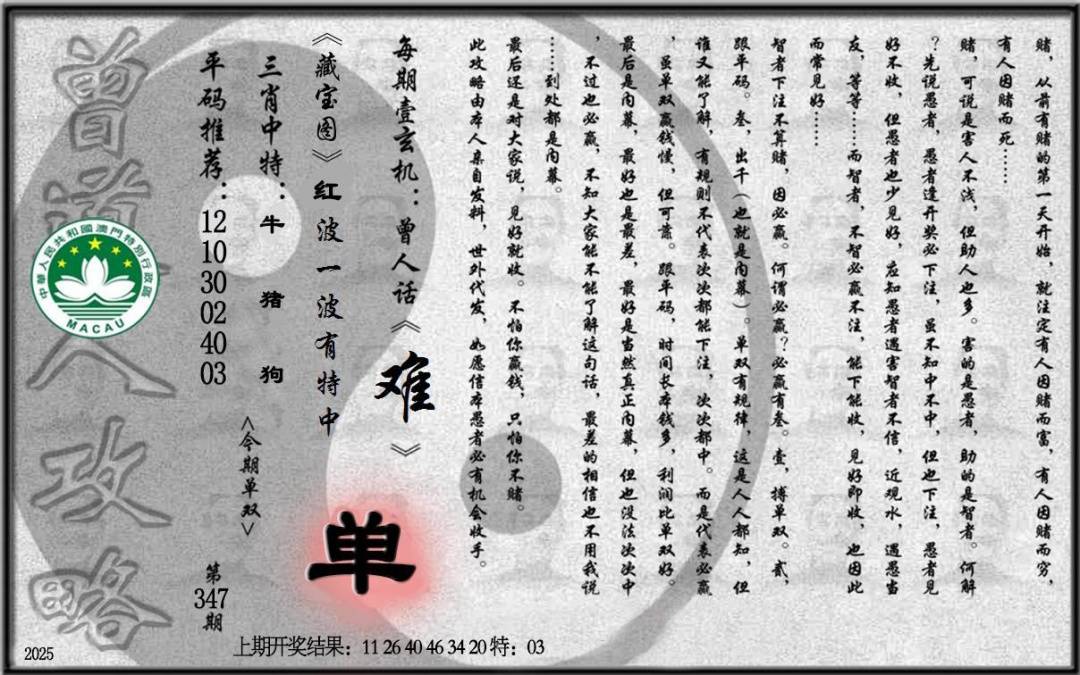 赌，从前有赌的第一天开始，就注定有人因赌而富，有人因赌而穷，
有人因赌而死……
赌，可说是害人不浅，但助人也多。害的是愚者，助的是智者。何解
？先说愚者，愚者逢开奖必下注，虽不知中不中，但也下注，愚者见
好不收，但愚者也少见好，应知愚者遇害智者不信，近观水，遇愚当
友，等等……而智者，不智必赢不注，能下能收，见好即收，也因此
而常见好……
智者下注不算赌，因必赢。何谓必赢？必赢有叁。壹，搏单双。贰，
跟单码。叁，出千（也就是内幕）。单双有规律，这是人人都知，但
谁又能了解，有规则不代表次次都能下注，次次都中。而是代表必赢
，虽单双赢钱慢，但可靠。跟单码，时间长本钱多，利润比单双好。
最后是内幕，最好也是最差，最好是当然真正内幕，但也没法次次中
，不过也必赢，不知大家能不能了解这句话，最差的相信也不用我说
……到处都是内幕。
最后还是对大家说，见好就收。不怕你赢钱，只怕你不赌。
此攻略由本人亲自发料，世外代发，如愿信本愚者必有机会收手。
每期壹玄机：曾人话《难》
《藏宝图》红波一波有特中
三肖中特：牛 猪 狗
平码推荐：12 10 30 02 40 03
<今期单双>
单
第347期
曾道人攻略
中華人民共和國澳門特別行政區
MACAU
上期开奖结果：11 26 40 46 34 20 特：03
2025